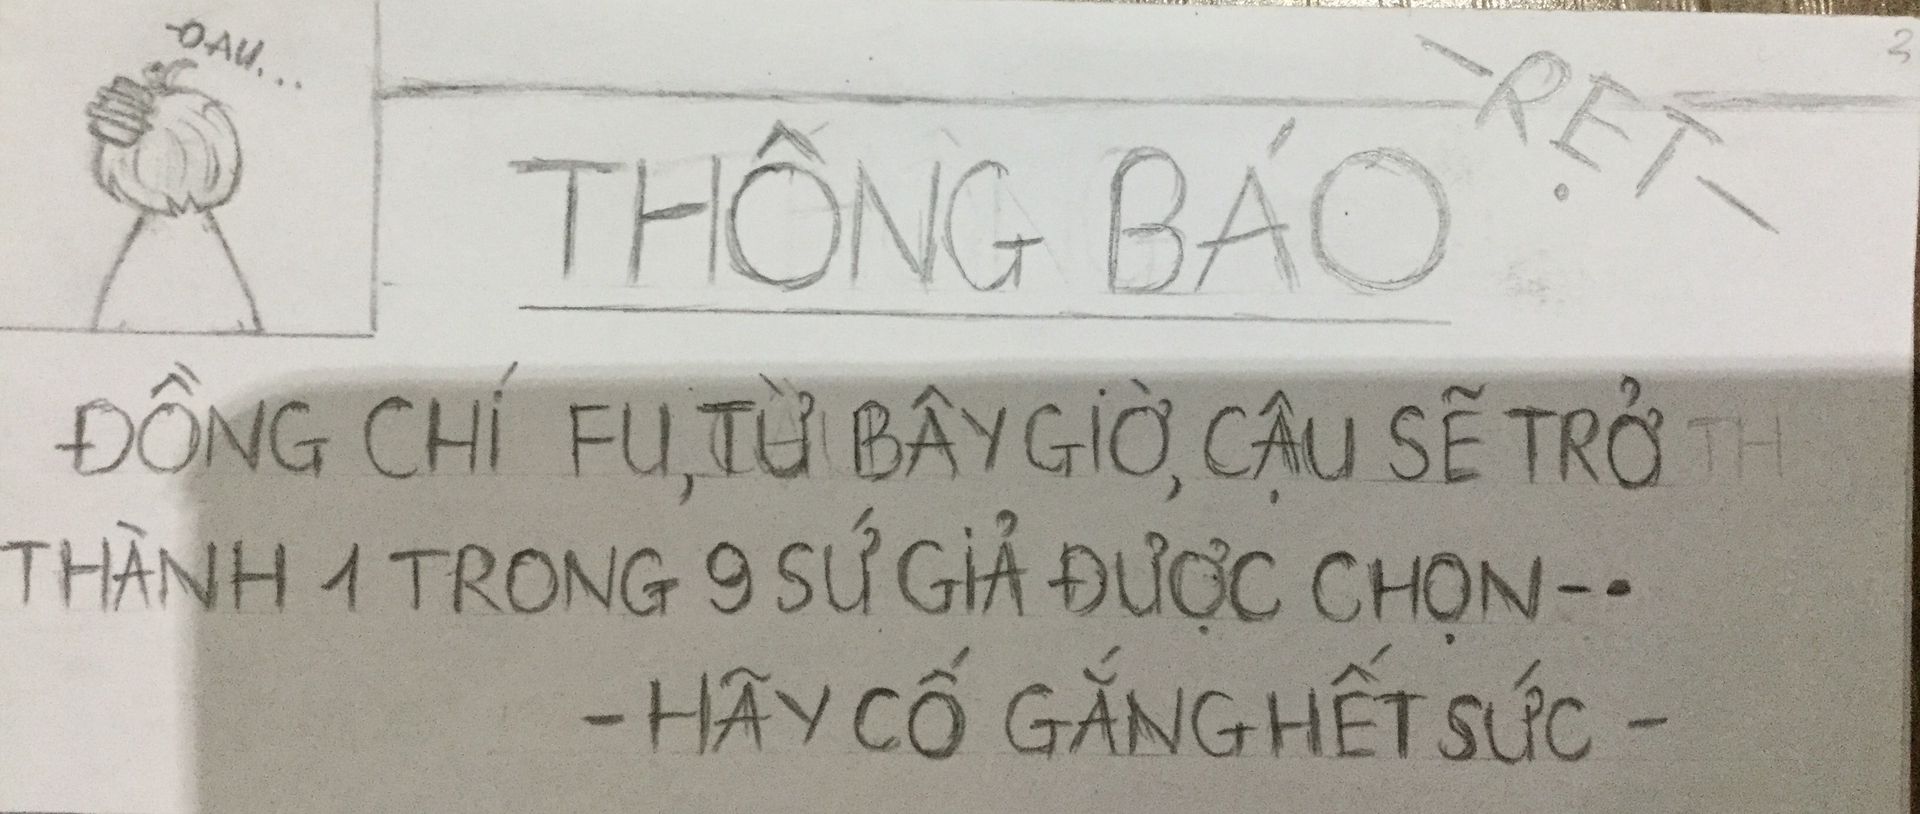 -OAU...
-RẸT-
2
THÔNG BÁO
ĐỒNG CHÍ FU, TỪ BÂY GIỜ, CẬU SẼ TRỞ TH
THÀNH 1 TRONG 9 SỨ GIẢ ĐƯỢC CHỌN--•
-HÃY CỐ GẮNG HẾT SỨC-